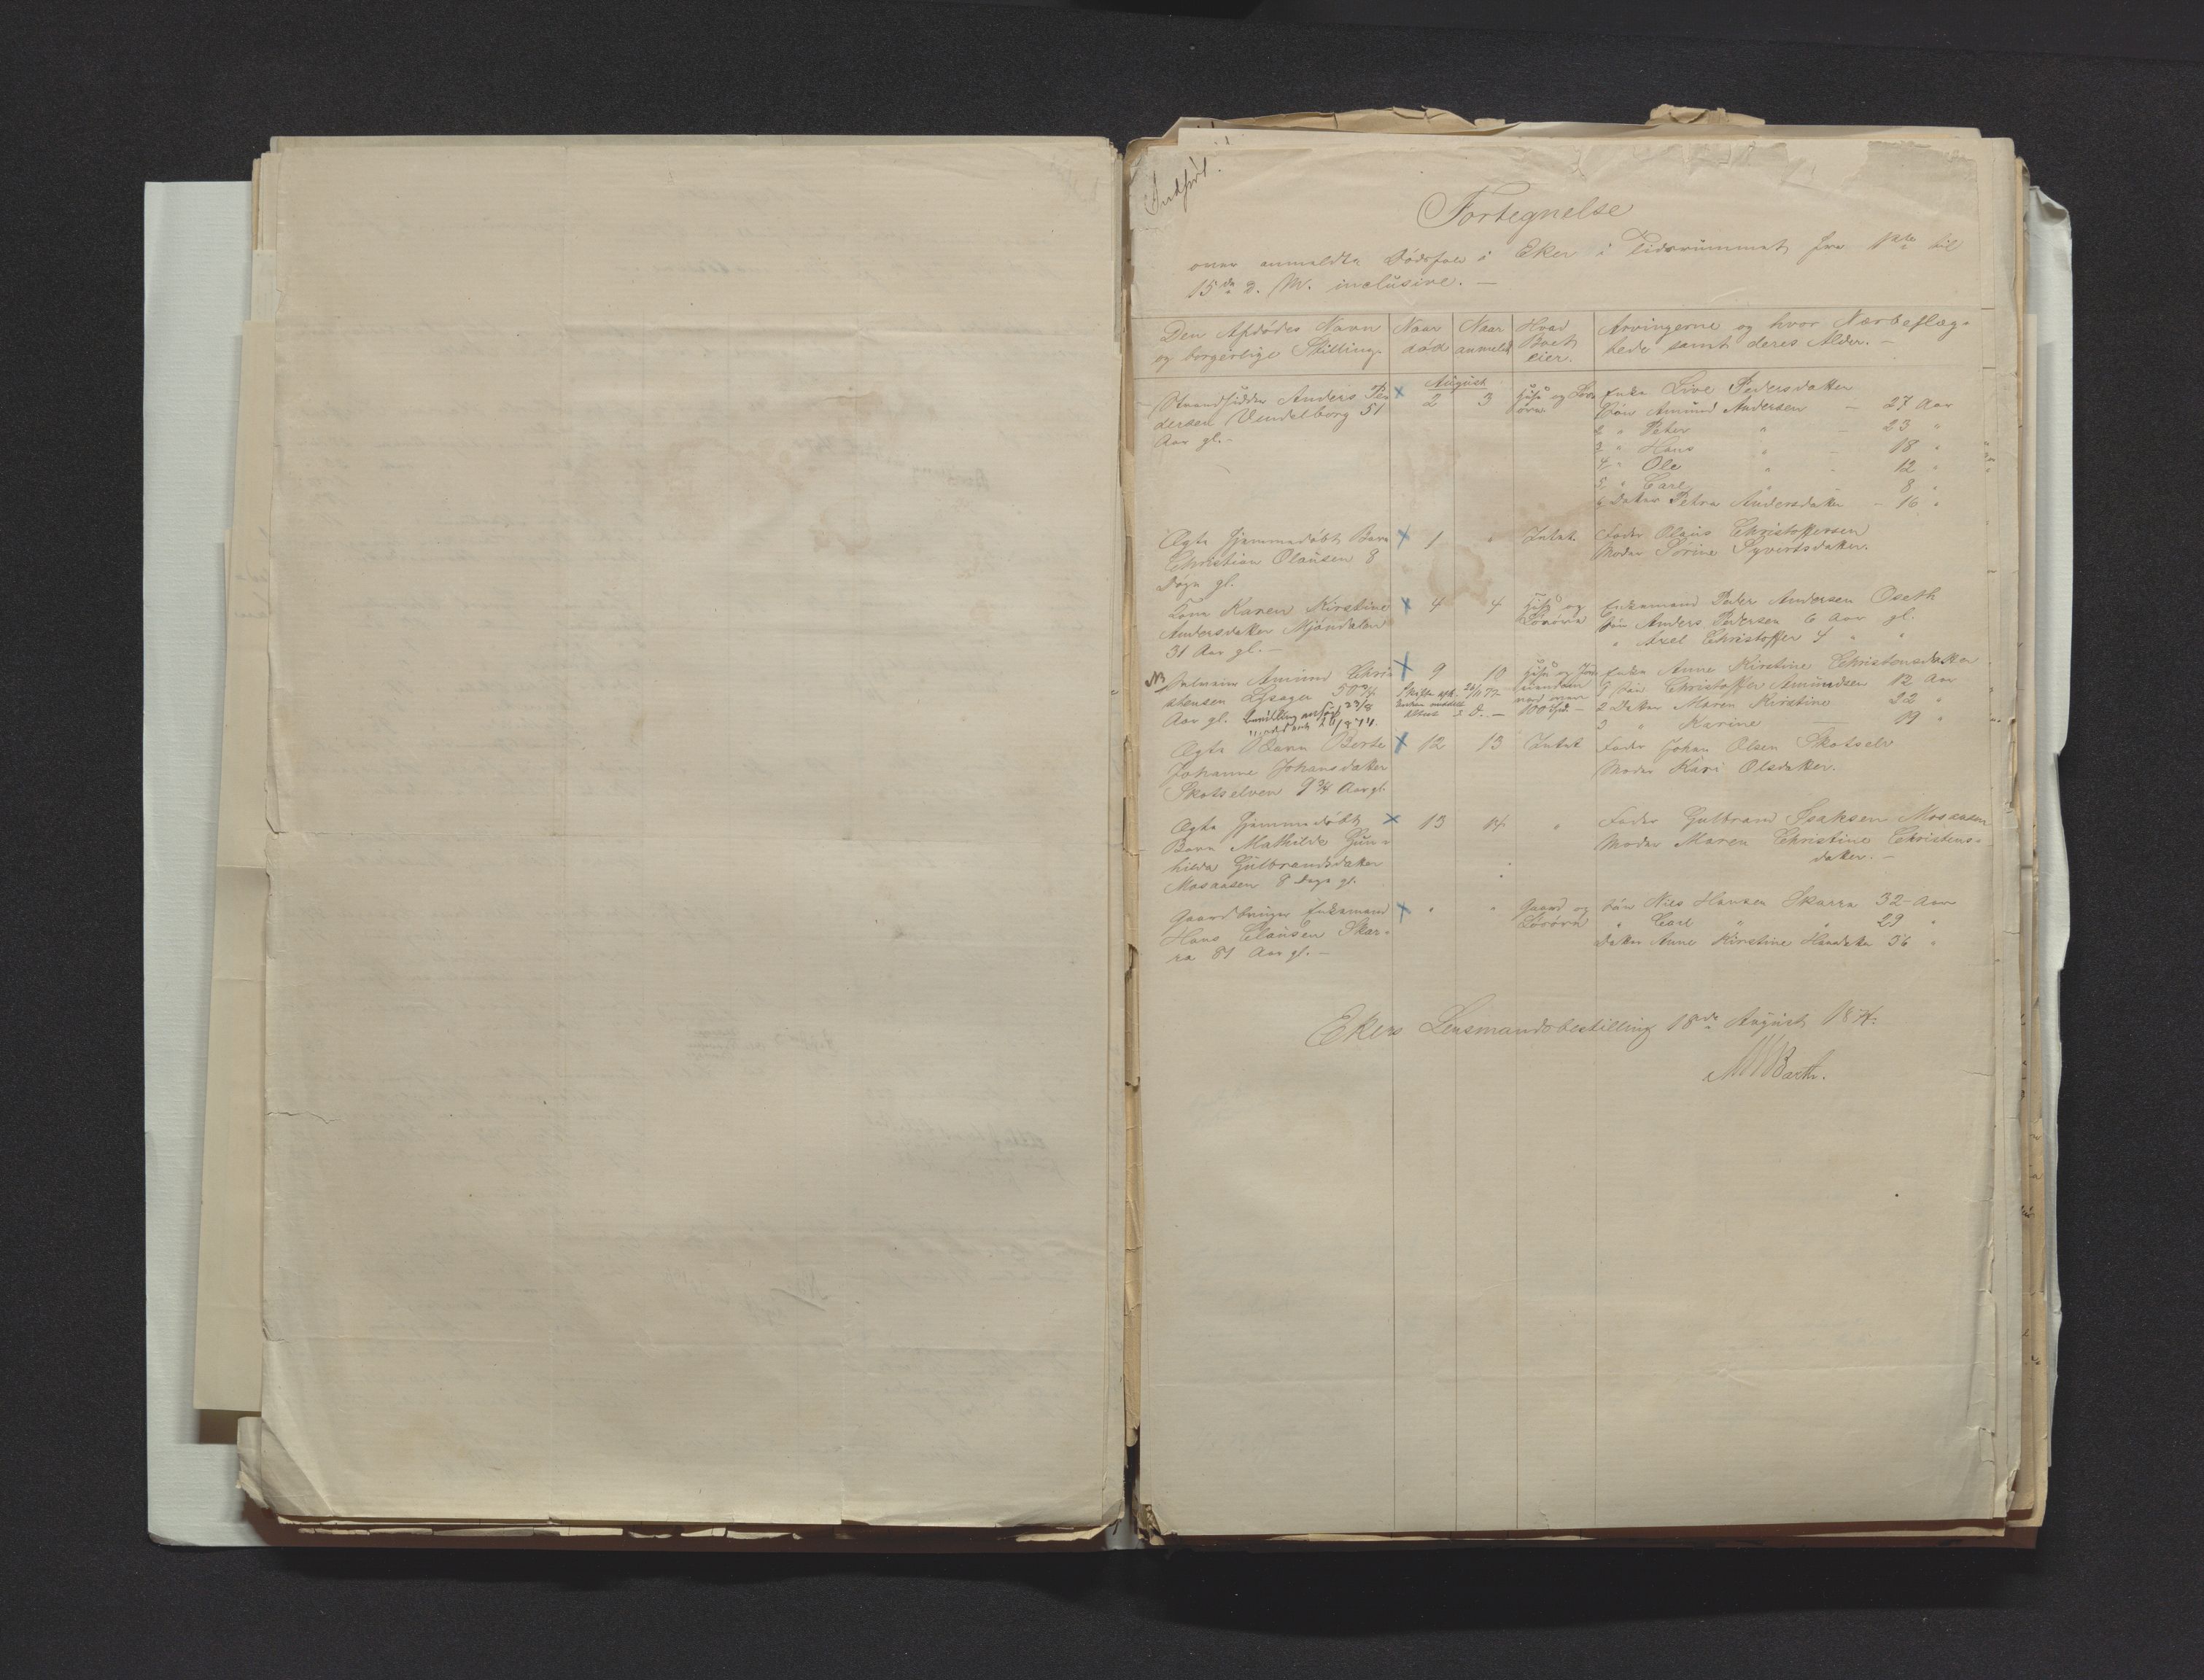 Indført.
Fortegnelse
over anmeldte Dødsfald i Eker i Tidsrummet fra 1ste til
15de d. M. inclusive. —
Den Afdødes Navn og borgerlige Stilling.
Naar død
Naar anmeldt
Hvad Boet eier.
Arvingerne og hvor Nærbeslæg-
tede samt deres Alder. —
August
Strandsidder Anders Pe- x 2 3 Huus og Løs- Enke Live Pedersdatter
dersen Vendelborg 51 øre Søn Amund Andersen — 27 Aar
Aar gl. — 2 " Peter " — 23 "
3 " Hans " — 18 "
4 " Ole " " 12 "
5 " Carl " 8 "
6 Datter Petra Andersdatter — 16 "
Ægte hjemmedøbt Barn x 1 " Intet. Fader Olaus Christoffersen
Christian Olausen 8 Moder Sørine Syvertsdatter.
Døgn gl.
Kone Karen Kirstine x 4 4 Huus og Enkemand Peder Andersen Oseth
Andersdatter Mjøndalen Løsøre Søn Anders Pedersen 6 Aar gl.
31 Aar gl. — " Axel Christoffer 4 " "
Amund Chri- x 9 10 Huus og Enke Anne Kirstine Christensdatter
stensen Lysager 50 3/4 1 Søn Christoffer Amundsen 12 Aar
Aar gl. 100 2 Datter Maren Kirstine 22 "
3 " Karine — 19 "
Ægte Barn Berte x 12 13 Intet Fader Johan Olsen Skotselv
Johanne Johansdatter Moder Kari Olsdatter.
Skotselven 9 3/4 Aar gl.
Ægte hjemmedøbt x 13 14 " Fader Gulbrand Isaksen Mosaasen
Barn Mathilde Gun- Moder Maren Christine Christens-
hilda Gulbrandsdatter datter. —
Mosaasen 8 Dage gl.
Gaardbruger Enkemand x " " Gaard og Søn Nils Hansen Skarra 32 Aar
Hans Clausen Skar- Løsøre " Carl " " 29 "
ra 81 Aar gl. — Datter Anne Kirstine Hansdatter 36 "
Ekers Lensmandsbestilling 18de August 1874.
Barth.